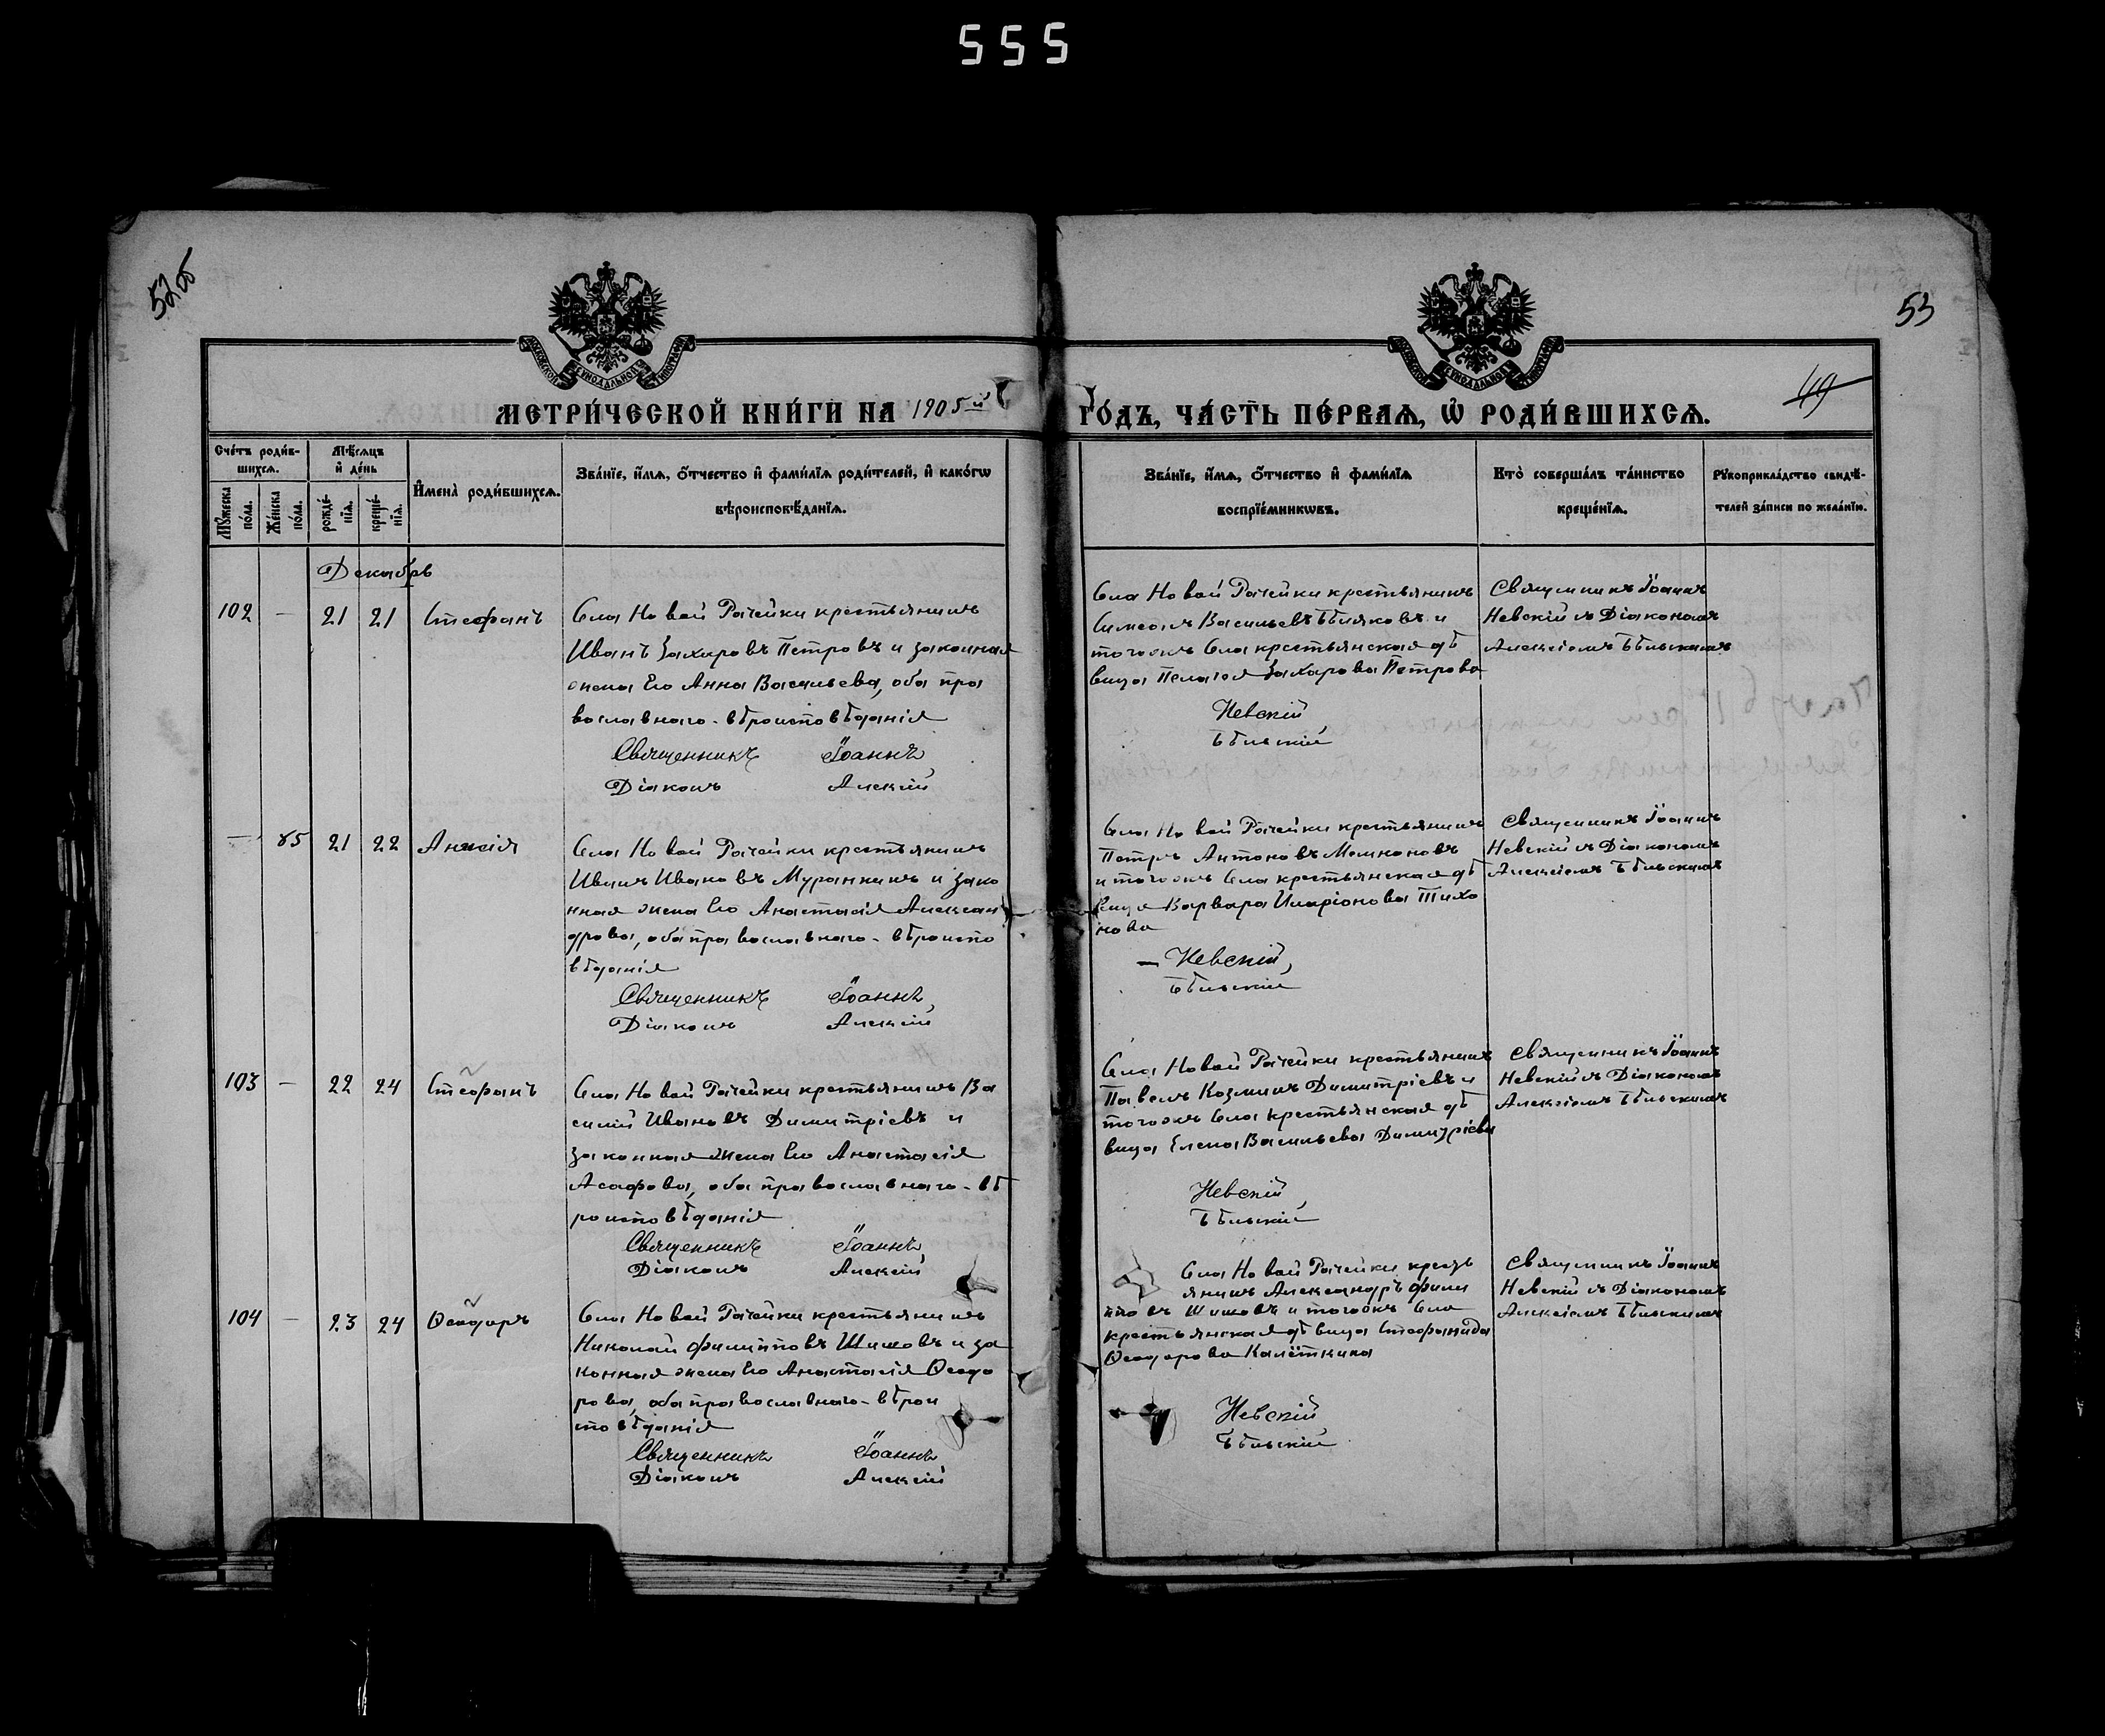 555
52об
53
49
МЕТРИ́ЧЕСКОЙ КНИ́ГИ НА 1905й
ГО́ДЪ, ЧА́СТЬ ПЕ́РВАѦ, Ѡ҆ РОДИ́ВШИХСѦ.
Сче́тъ роди́в-
шихсѧ.
Мѣ́сѧцъ
и҆ де́нь
Мꙋ́жеска
по́ла.
Же́нска
по́ла.
рожде́-
нїѧ.
креще́-
нїѧ.
И҆мена̀ роди́вшихсѧ.
Зва́нїе, и҆́мѧ, ѻ҆́тчество и҆ фами́лїѧ роди́телей, и҆ како́гѡ
вѣроисповѣ́данїѧ.
Зва́нїе, и҆́мѧ, ѻ҆́тчество и҆ фами́лїѧ
воспрїе́мникѡвъ.
Кто̀ соверша́лъ та́инство
креще́нїѧ.
Рꙋкоприкла́дство свидѣ́-
телей за́писи по жела́нїю.
Декабрь
102 - 21 21 Стефанъ
Села Новой Рачейки крестьянинъ
Иванъ Захаровъ Петровъ и законная
жена его Анна Васильева, оба пра
вославнаго-вѣроисповѣданія
Священникъ Іоаннъ
Діаконъ Алексій
Села Новой Рачейки крестьянинъ
Симеонъ Васильевъ Бѣляковъ и
тогожъ села крестьянская дѣ
вица Пелагея Захарова Петрова
Невскій
Бѣльскій
Священникъ Іоаннъ
Невскій съ Діакономъ
Алексіемъ Бѣльскимъ
- 85 21 22 Анисія
Села Новой Рачейки крестьянинъ
Иванъ Ивановъ Муранкинъ и зако
нная жена его Анастасія Алексан
дрова, оба православнаго-вѣроиспо
вѣданія
Священникъ Іоаннъ,
Діаконъ Алексій
Села Новой Рачейки крестьянинъ
Петръ Антоновъ Мемноновъ
и тогожъ села крестьянская дѣ
вица Варвара Иларіонова Тихо
нова
Невскій,
Бѣльскій
Священникъ Іоаннъ
Невскій съ Діакономъ
Алексіемъ Бѣльскимъ
103 - 22 24 Стефанъ
Села Новой Рачейки крестьянинъ Ва
силій Ивановъ Димитріевъ и
законная жена его Анастасія
Асафова, оба православнаго-вѣ
роисповѣданія
Священникъ Іоаннъ,
Діаконъ Алексій
Села Новой Рачейки крестьянинъ
Павелъ Козминъ Димитріевъ и
тогожъ села крестьянская дѣ
вица Елена Васильева Димитріева
Невскій,
Бѣльскій
Священникъ Іоаннъ
Невскій съ Діакономъ
Алексіемъ Бѣльскимъ
104 - 23 24 Ѳеодоръ
Села Новой Рачейки крестьянинъ
Николай Филипповъ Шишовъ и за
конная жена его Анастасія Ѳеодо
рова, оба православнаго-вѣрои
сповѣданія
Священникъ Іоаннъ
Діаконъ Алексій
Села Новой Рачейки кресть
янинъ Александръ Фили
пповъ Шишовъ и тогожъ села
крестьянская дѣвица Стефанида
Ѳеодорова Калёткина
Невскій
Бѣльскій
Священникъ Іоаннъ
Невскій съ Діакономъ
Алексіемъ Бѣльскимъ